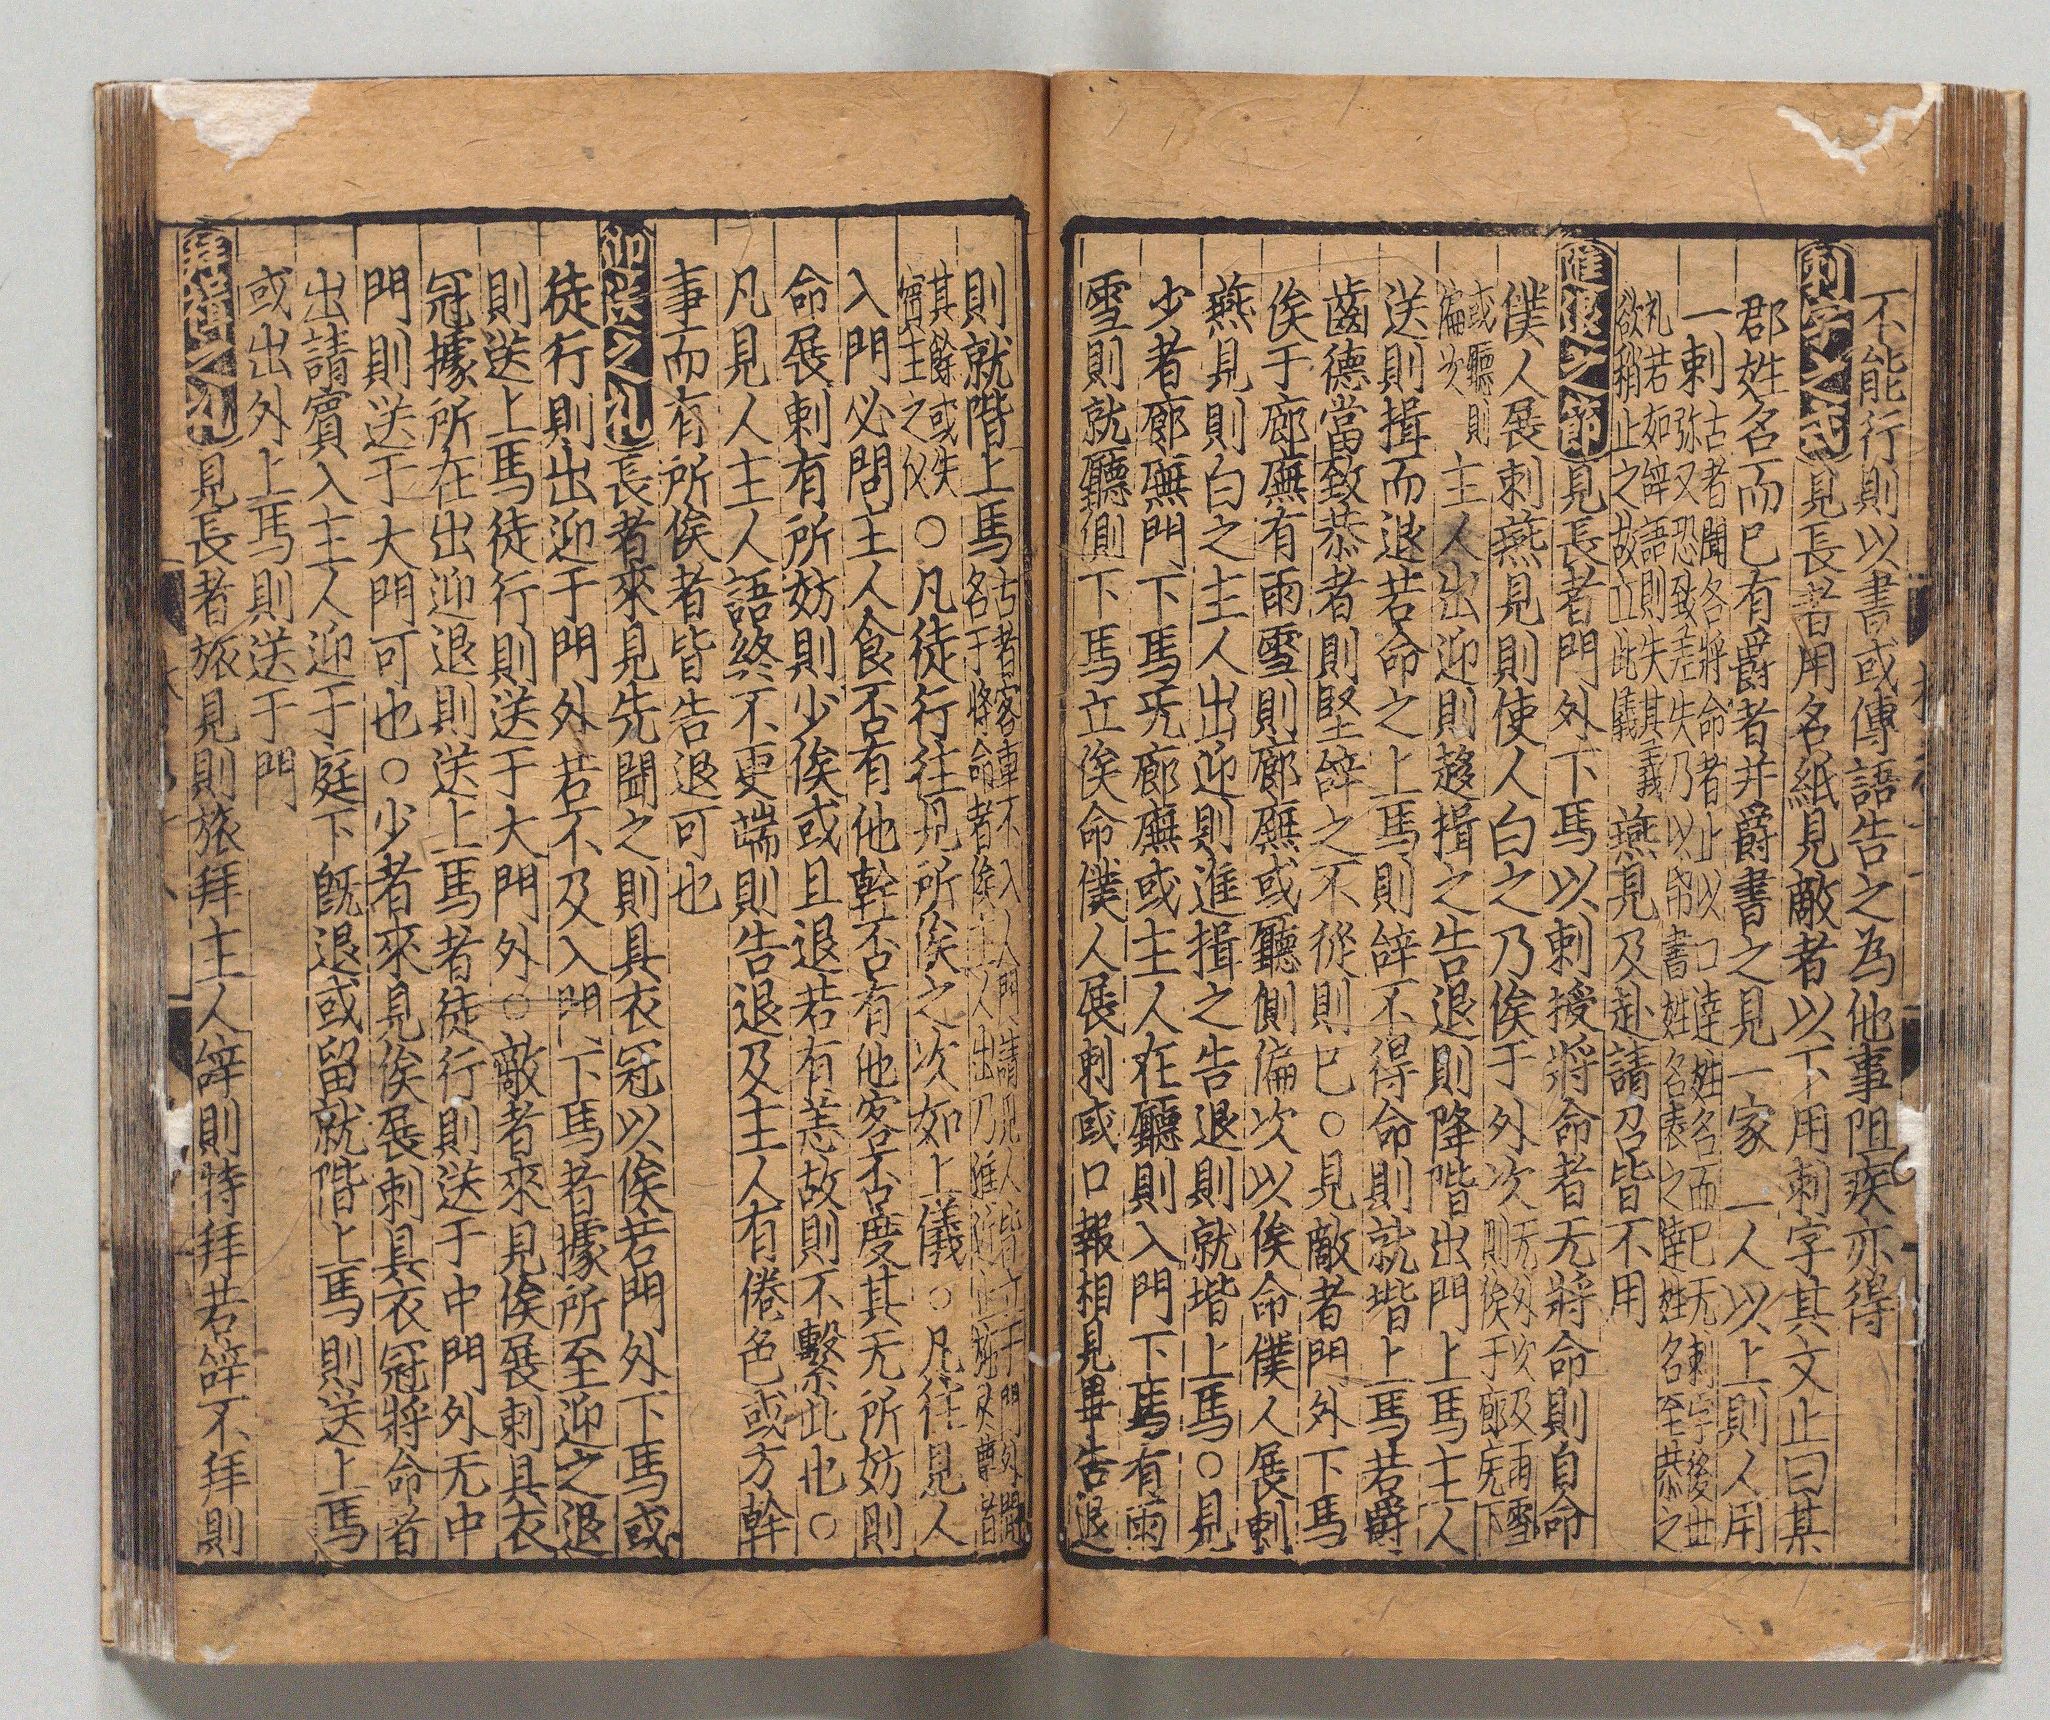 不能行則以書或傳語告之為他事阻疾亦得
刺字之式見長者用名紙見敵者以下用刺字其文止曰某
郡姓名而已有爵者并爵書之見一家一人以上則人用
一刺古者聞名將命者止以口達姓名而已无刺字後世
弥又恐致差失乃以帋書姓名表之達姓名至恭之
礼若如辝語則失其義
欲稍止之故立此儀燕見及赴請召皆不用
進退之節見長者門外下馬以刺授將命者无將命則自命
僕人展刺燕見則使人白之乃俟于外次无外次及雨雪
則俟于廊庑下
或聽則
偏次主人出迎則趍揖之告退則降階出門上馬主人
送則揖而退若命之上馬則辝不得命則就堦上馬若爵
齒德當致恭者則堅辝之不從則已○見敵者門外下馬
俟于廊廡有雨雪則廊廡或聽側偏次以俟命僕人展刺
燕見則白之主人出迎則進揖之告退則就堦上馬○見
少者廊廡門下馬无廊廡或主人在聽則入門下馬有雨
雪則就聽側下馬立俟命僕人展刺或口報相見畢告退
則就階上馬古者客車不入大門請見人皆立于門外聞
名于將命者俟主人出乃進
其餘或失
賓主之儀○凡徒行往見所俟之次如上儀○凡往見人
入門必問主人食否有他幹否有他客否度其无所妨則
命展刺有所妨則少俟或且退若有恙故則不繫此也○
凡見人主人語終不更端則告退及主人有倦色或方幹
事而有所俟者皆告退可也
迎送之礼長者來見先聞之則具衣冠以俟若門外下馬或
徒行則出迎于門外若不及入門下馬者據所至迎之退
則送上馬徒行則送于大門外○敵者來見俟展刺具衣
冠據所在出迎退則送上馬者徒行則送于中門外无中
門則送于大門可也○少者來見俟展刺具衣冠將命者
出請賓入主人迎于庭下旣退或留就階上馬則送上馬
或出外上馬則送于門
拜揖之礼見長者旅見則旅拜主人辝則特拜若辝不拜則